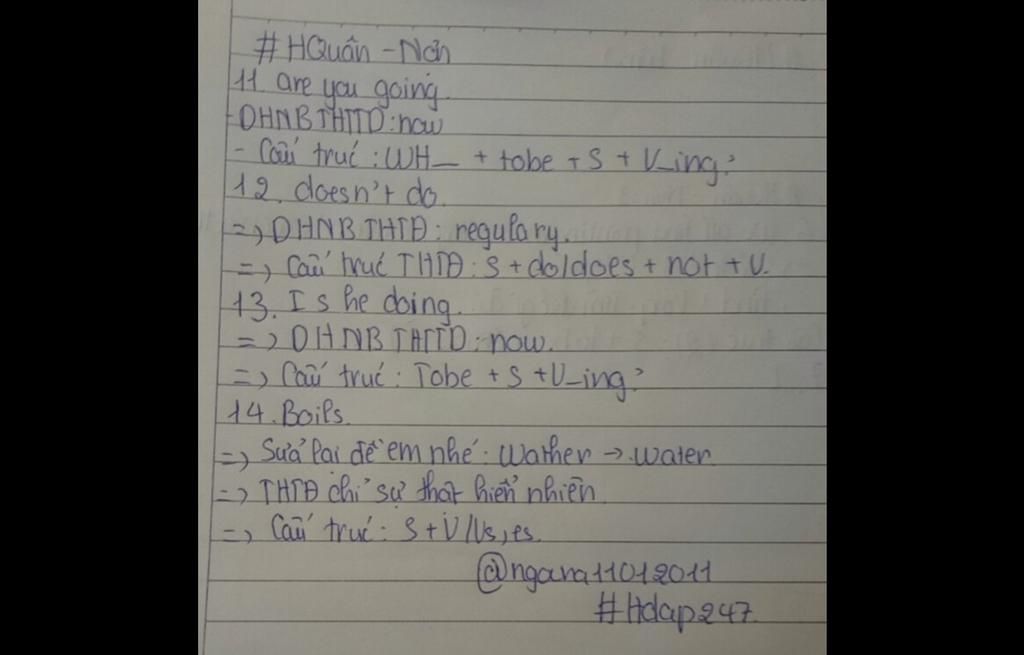 #HQuân - Nơn
11. are you going.
- DHNBTHTTD: now
- Cấu trúc: WH_ + tobe + S + V_ing?
12. doesn't do.
=> DHNBTHTĐ: regulary.
=> Cấu trúc THTĐ: S + do/does + not + V.
13. Is he doing.
=> DHNBTHTTD: now.
=> Cấu trúc: Tobe + S + V_ing?
14. Boils.
=> Sửa lại đề em nhé: Wather → water.
=> THTĐ chỉ sự thật hiển nhiên
=> Cấu trúc: S + V/Vs,es.
@ngana11012011
#Hdap247.